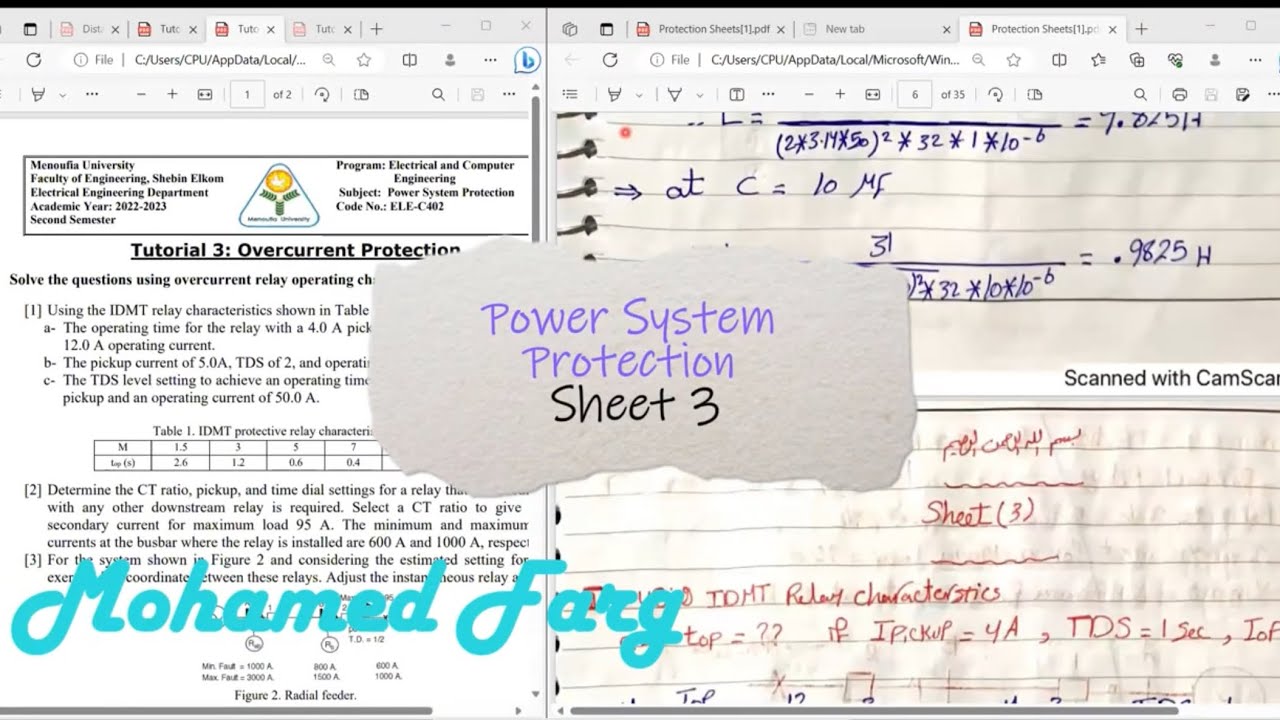 Dist
Tuto
Tuto
Tuto
File
C:/Users/CPU/AppData/Local/...
1 of 2
Menoufia University
Faculty of Engineering, Shebin Elkom
Electrical Engineering Department
Academic Year: 2022-2023
Second Semester
Menoufia University
Program: Electrical and Computer
Engineering
Subject: Power System Protection
Code No.: ELE-C402
Tutorial 3: Overcurrent Protection
Solve the questions using overcurrent relay operating
[1] Using the IDMT relay characteristics shown in Table
a- The operating time for the relay with a 4.0 A
12.0 A operating current.
b- The pickup current of 5.0A, TDS of 2, and
c- The TDS level setting to achieve an operating
pickup and an operating current of 50.0 A.
Table 1. IDMT protective relay
M 1.5 3 5 7
top (s) 2.6 1.2 0.6 0.4
[2] Determine the CT ratio, pickup, and time dial settings for a relay
with any other downstream relay is required. Select a CT ratio to give
secondary current for maximum load 95 A. The minimum and maximum
currents at the busbar where the relay is installed are 600 A and 1000 A,
[3] For the system shown in Figure 2 and considering the estimated setting for
coordinate between these relays. Adjust the instantaneous relay
T.D. = 1/2
Min. Fault = 1000 A. 800 A. 600 A.
Max. Fault = 3000 A. 1500 A. 1000 A.
Figure 2. Radial feeder.
Protection Sheets[1].pdf
New tab
Protection Sheets[1].pd
File
C:/Users/CPU/AppData/Local/Microsoft/Win...
6 of 35
(2*3.14*50)2 * 32 * 1 * 10-6 = 7.825H
⇒ at C = 10 Mf
31
* 32 * 10 * 10-6 = .9825 H
Scanned with CamScan
بسم الله الرحمن الرحيم
Sheet (3)
IDMT Relay characterstics
top = ?? if IPickup = 4A , TDS = 1 Sec ,
Power System
Protection
Sheet 3
Mohamed Farg